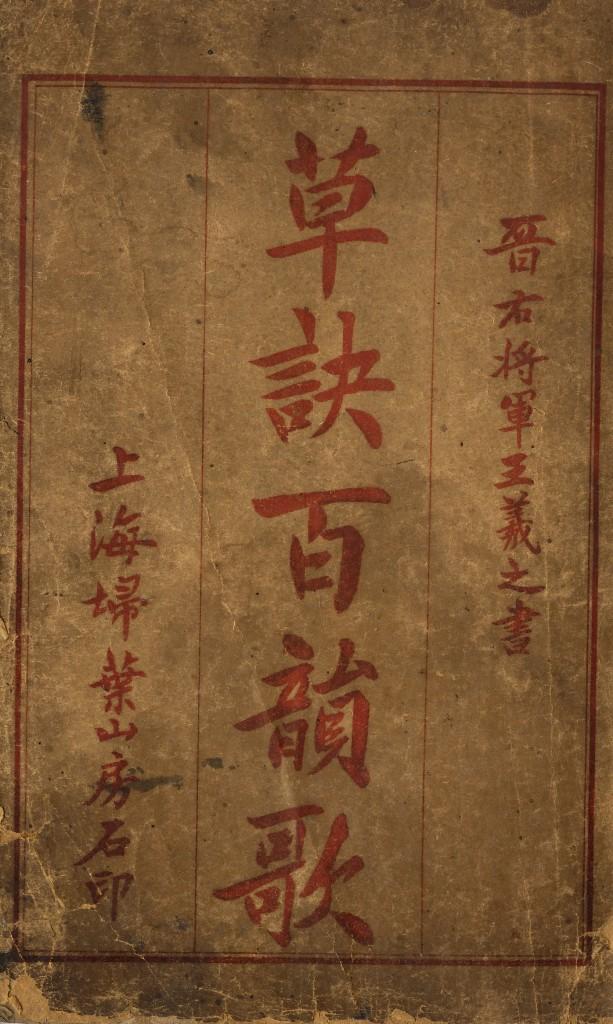 晉右将軍王羲之書
草訣百韻歌
上海埽葉山房石印